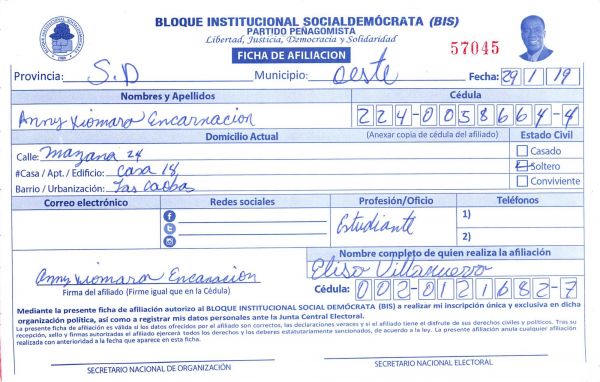 BLOQUE INSTITUCIONAL SOCIALDEMÓCRATA (BIS)
PARTIDO PEÑAGOMISTA
Libertad, Justicia, Democracia y Solidaridad
FICHA DE AFILIACION
57045
Provincia: S.D Municipio: oeste Fecha: 29/1/19
Nombres y Apellidos Cédula
Anny Xiomara Encarnacion 224-0058664-4
Domicilio Actual (Anexar copia de cédula del afiliado) Estado Civil
Calle: Manzana 24 Casado
#Casa / Apt. / Edificio: Casa 18 Soltero
Barrio / Urbanización: Las Caobas Conviviente
Correo electrónico Redes sociales Profesión/Oficio Teléfonos
Estudiante 1)
2)
Nombre completo de quien realiza la afiliación
Anny Xiomara Encanacion Elisa Villanueva
Firma del afiliado (Firme igual que en la Cédula) Cédula: 002-0121682-7
Mediante la presente ficha de afiliación autorizo al BLOQUE INSTITUCIONAL SOCIAL DEMÓCRATA (BIS) a realizar mi inscripción única y exclusiva en dicha
organización política, así como a registrar mis datos personales ante la Junta Central Electoral.
La presente ficha de afiliación es válida si los datos ofrecidos por el afiliado son correctos, las declaraciones veraces y si el afiliado tiene el disfrute de sus derechos civiles y políticos. Tras su
recepción, sello y firmas autorizadas el afiliado ejercerá todos los derechos y los deberes estatutariamente sancionados, de acuerdo a la ley. La presente afiliación anula cualquier afiliación
realizada con anterioridad a la fecha que aparece en esta ficha.
SECRETARIO NACIONAL DE ORGANIZACIÓN SECRETARIO NACIONAL ELECTORAL